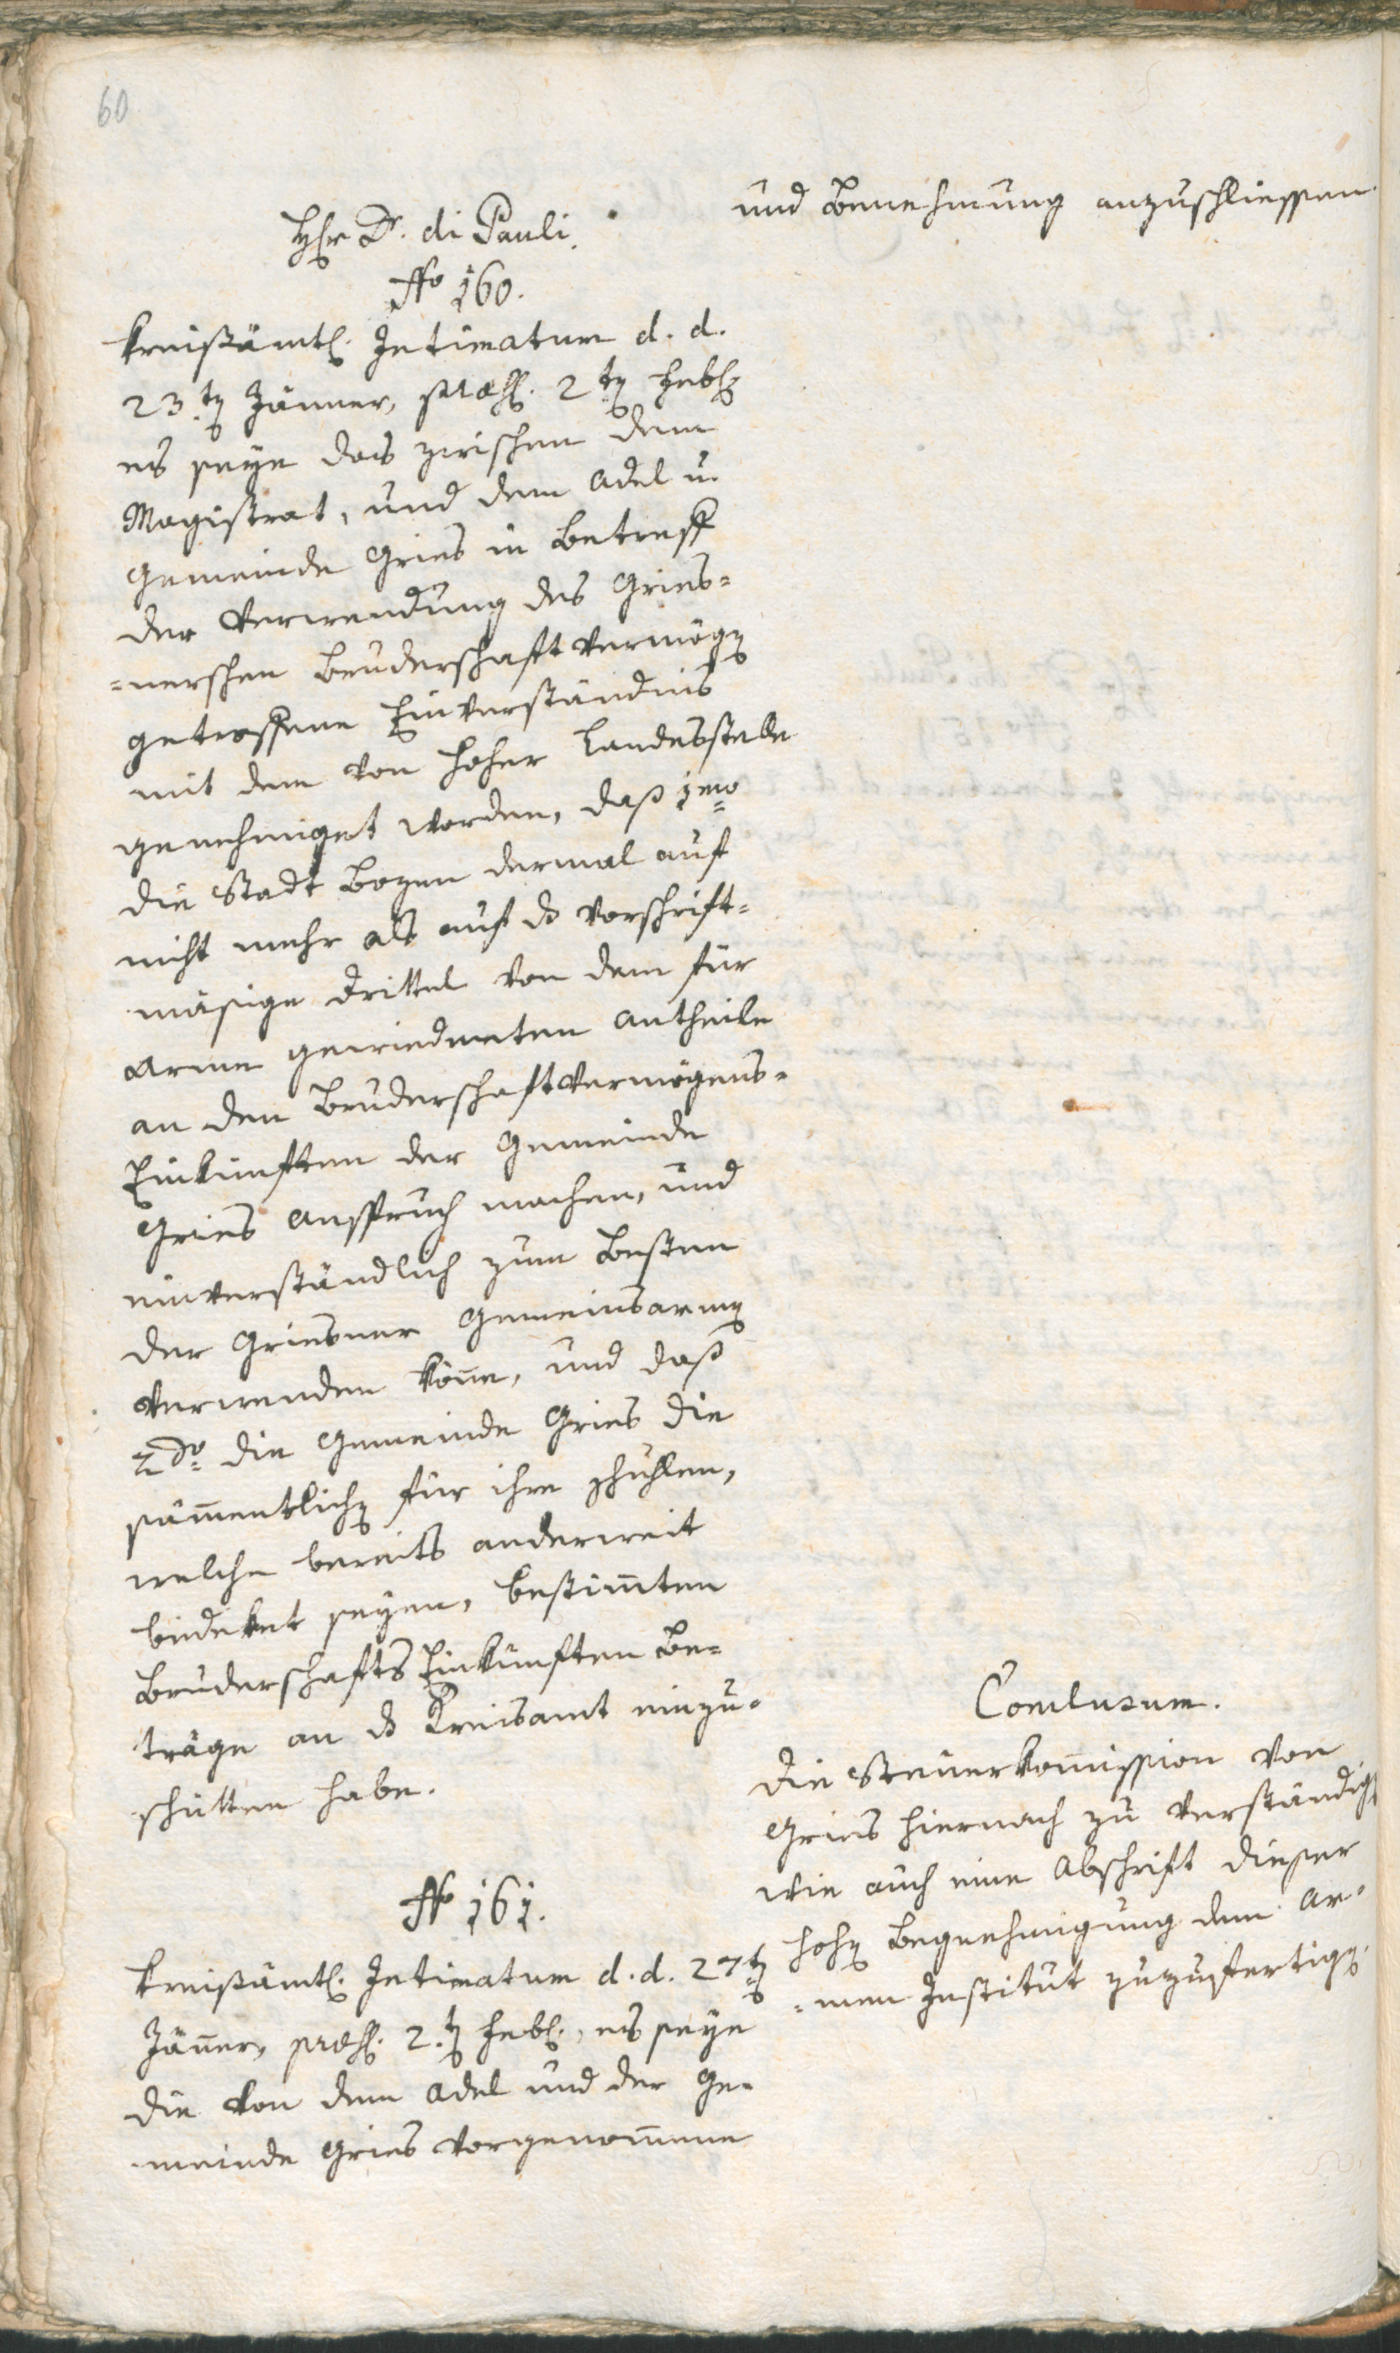 60
und Benehmung anzuschliessen.
Hr Dr. di Pauli.
No 160.
Kreißämtl. Intimatum d. d.
23.ten Jänner, præs. 2ten Febr.
es seye das zwischen dem
Magistrat, und dem Adel u.
Gemeinde Gries in Betreff
der Verwendung des Gries=
=nerschen Bruderschaftvermögen
getroffene Einverständnis
mit dem von hoher Landesstelle
genehmiget worden, daß 1mo
die Stadt Bozen dermal auf
nicht mehr als auf ds vorschrift=
mäsige Drittel von dem für
Arme gewiedmeten Antheile
an den Bruderschaftvermögens=
Einkünften der Gemeinde
Gries Anspruch machen, und
einverständlich zum Besten
der Griesner Gemeindsarmen
verwenden könne, und daß
2do die Gemeinde Gries die
sämmentlichen für ihre Schuhlen,
welche bereits anderweit
bedeket seyen, bestimmten
Bruderschafts Einkünften Be=
träge an ds Kreisamt einzu=
schütten habe.
No 161.
Kreißämtl. Intimatum d. d. 27ten
Jänner, præs. 2.ten Febr., es seye
die von dem Adel und der Ge=
meinde Gries vorgenommene
Conclusum.
Die Steuerkommission von
Gries hiernach zu verständigen
wie auch eine Abschrift dieser
hohen Begnehmigung dem Ar=
=men Institut zuzufertigen.